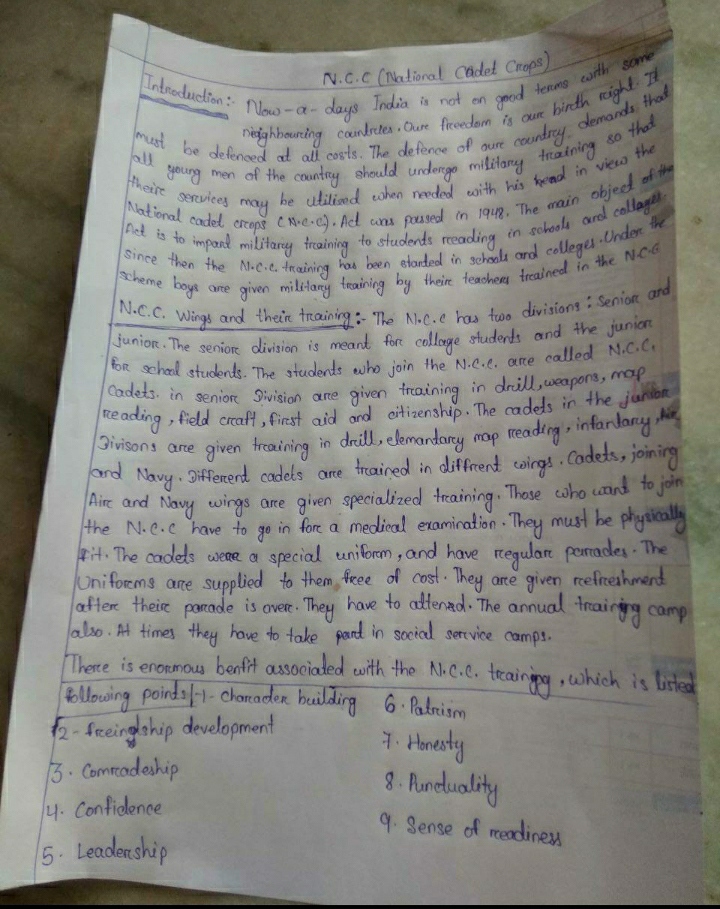 N.C.C (National Cadet Crops)
Introduction:- Now-a-days India is not on good terms with some
neighbouring countries. Our freedom is our birth right. It
must be defenced at all costs. The defence of our country demands that
all young men of the country should undergo military training so that
their services may be utilised when needed with his in view the
National cadet crops (N.C.C). Act was passed in 1948. The main object of the
Act is to impart military training to students reading in schools and collages
since then the N.C.C. training has been started in schools and colleges. Under the
scheme boys are given military training by their teachers trained in the N.C.C
N.C.C. Wings and their training:- The N.C.C has two divisions: Senior and
junior. The senior division is meant for collage students and the junior
for school students. The students who join the N.C.C. are called N.C.C.
Cadets. in senior Division are given training in drill, weapons, map
reading, field craft, first aid and citizenship. The cadets in the junior
Divisons are given training in drill, elemantary map reading, infantary, Air
and Navy. Different cadets are trained in diffrent wings. Cadets, joining
Air and Navy wings are given specialized training. Those who want to join
the N.C.C have to go in for a medical examination. They must be physically
fit. The cadets were a special uniform, and have regular parrades. The
Uniforms are supplied to them free of cost. They are given refreshment
after their parade is over. They have to attened. The annual training camp
also. At times they have to take part in social service camps.
There is enormous benfit associated with the N.C.C. training, which is listed
following points:-1- character building
2- freingship development
3. Comradeship
4. Confidence
5. Leadership
6. Patrism
7. Honesty
8. Punctuality
9. Sense of readiness